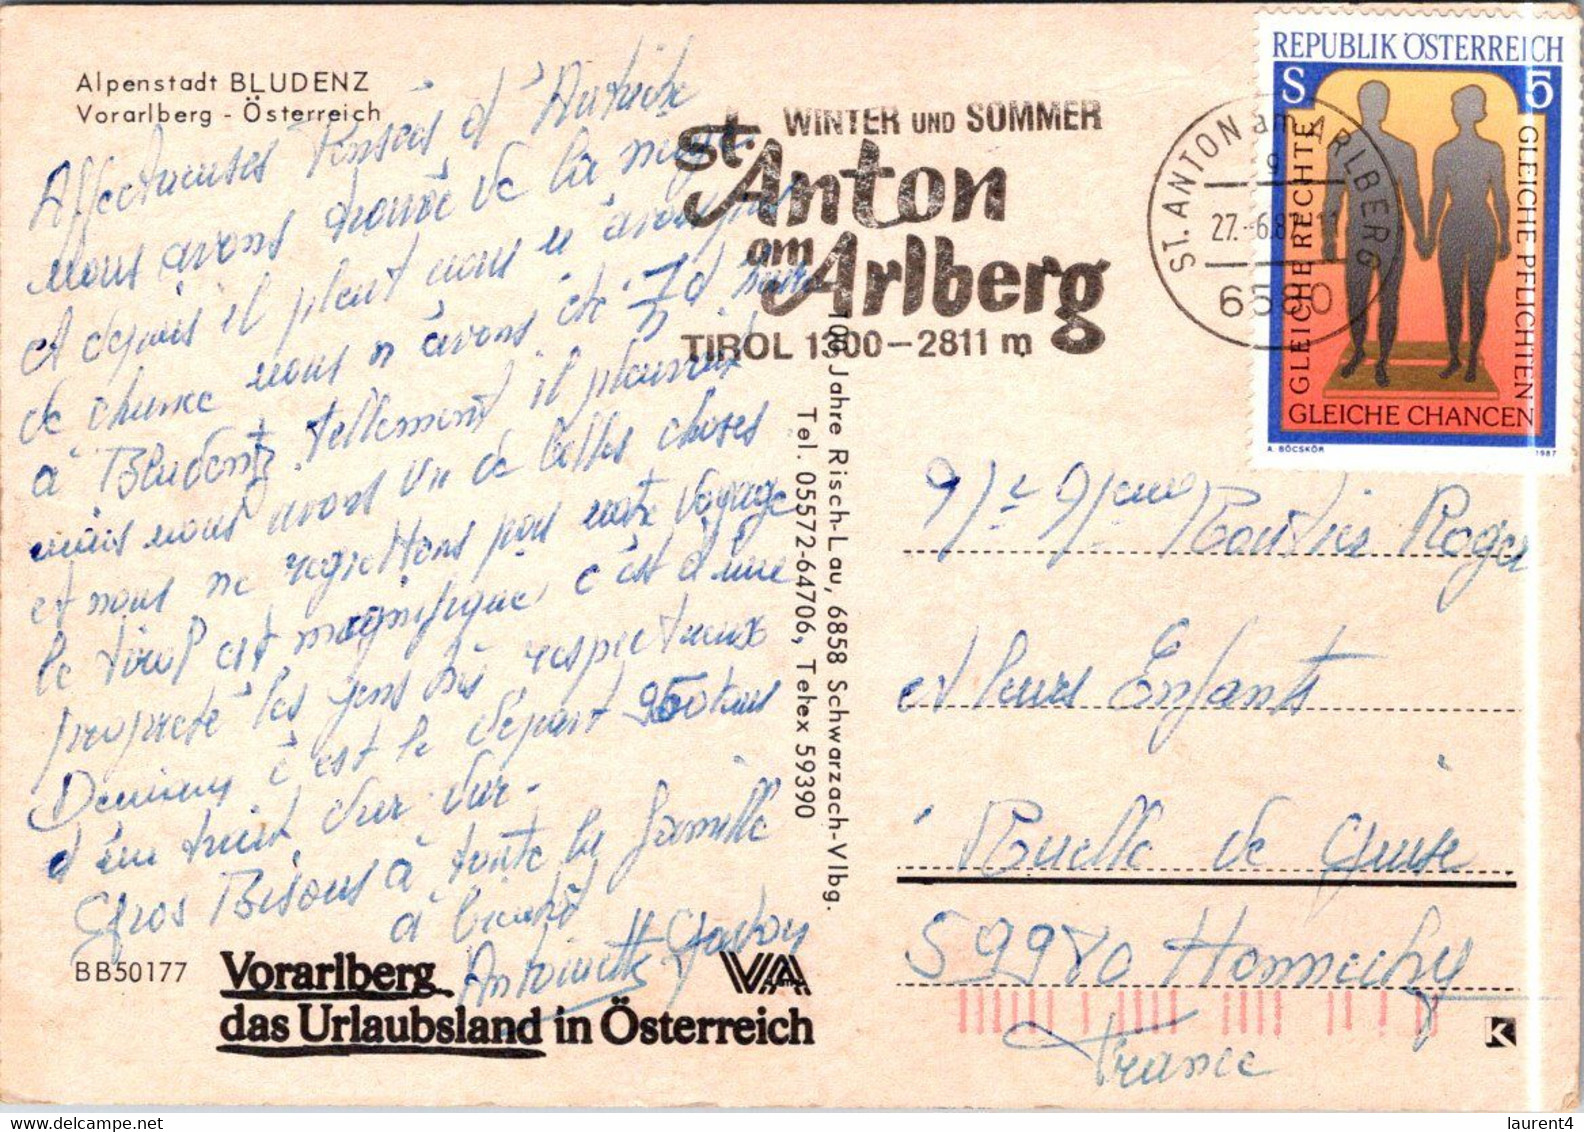 Alpenstadt BLUDENZ
Vorarlberg - Österreich
Affectueuses Pensées d'Autriche
nous avons trouvé de la neige
et depuis il pleut nous n'avons pas
de chance nous n'avons été
à Bludentz tellement il pleuvait
mais nous avons vu de belles choses
et nous ne regrettons pas notre voyage
le tirol est magnifique c'est d'une
propreté les gens très respectueux
Demain c'est le départ 950 kms
d'un trait, dur dur -
Gros Bisous à toute la famille
à bientôt
Antoinette Gaston
BB50177
Vorarlberg
das Urlaubsland in Österreich
VA
100 Jahre Risch-Lau, 6858 Schwarzach-Vlbg.
Tel. 05572-64706, Telex 59390
WINTER UND SOMMER
St. Anton
am Arlberg
TIROL 1300-2811 m
ST. ANTON am ARLBERG
9
27.-6.87-11
6580
REPUBLIK ÖSTERREICH
S 5
GLEICHE RECHTE
GLEICHE PFLICHTEN
GLEICHE CHANCEN
A. BÖCSKÖR 1987
Roger
et leurs Enfants
Ruelle de Guise
59980 Honnechy
France
K
laurent4